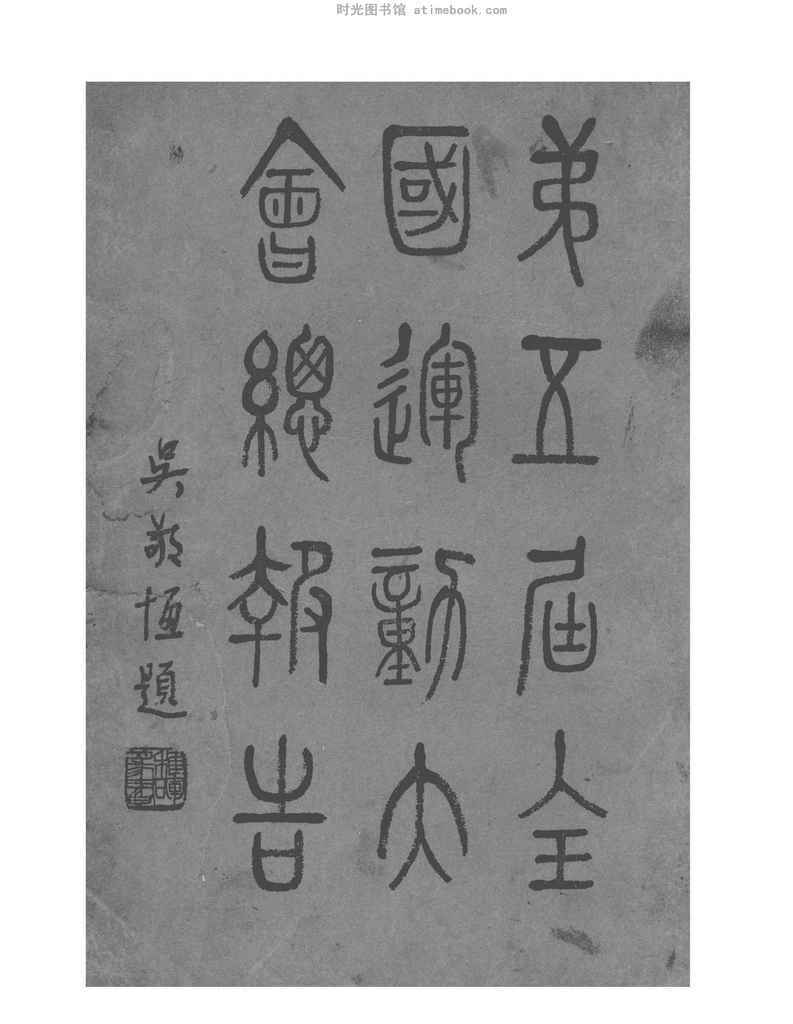 时光图书馆 atimebook.com
弟五屆全
國運動大
會總報告
吳敬恆題